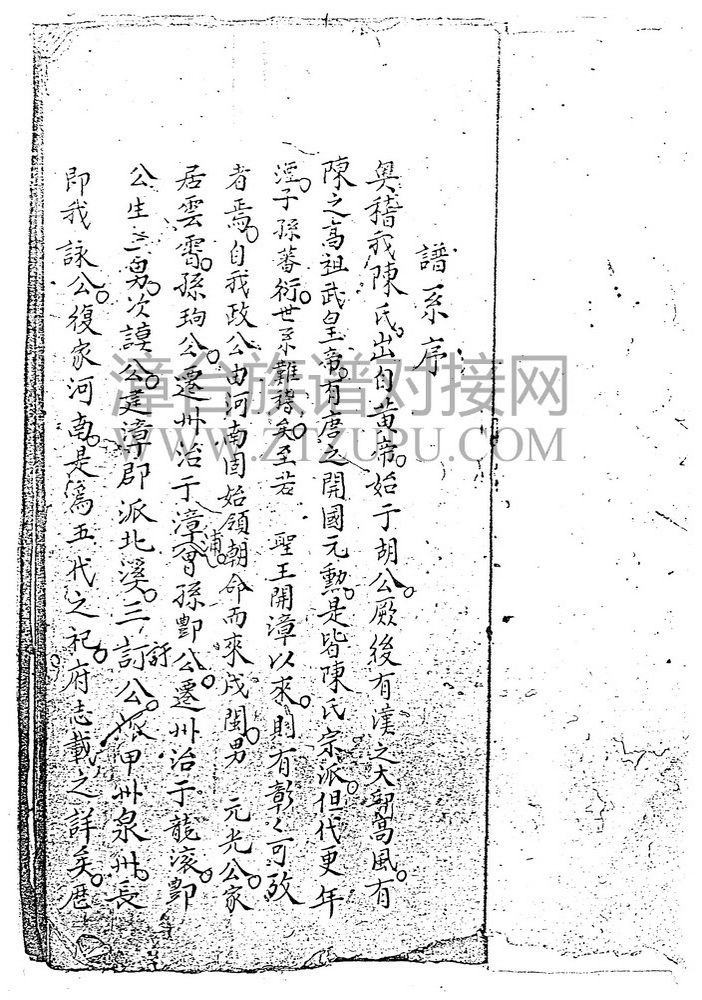 譜系序
奧稽我陳氏出自黃帝始于胡公厥後有漢之大朝高風有
陳之高祖武皇帝有唐之開國元勳是皆陳氏宗派但代更年
湮子孫蕃衍世系難稽矣至若 聖王開漳以來則有彰々可攷
者焉自我政公由河南固始領朝命而來戍閩男 元光公家
居雲霄孫珦公遷州治于漳浦曾孫酆公遷州治于龍溪酆
公生三男次謨公建漳郡派北溪三訂訏公派甲州泉州長
即我詠公復家河南是為五代之祀府志載之詳矣歷
漳台族谱对接网
WWW.ZTZUPU.COM